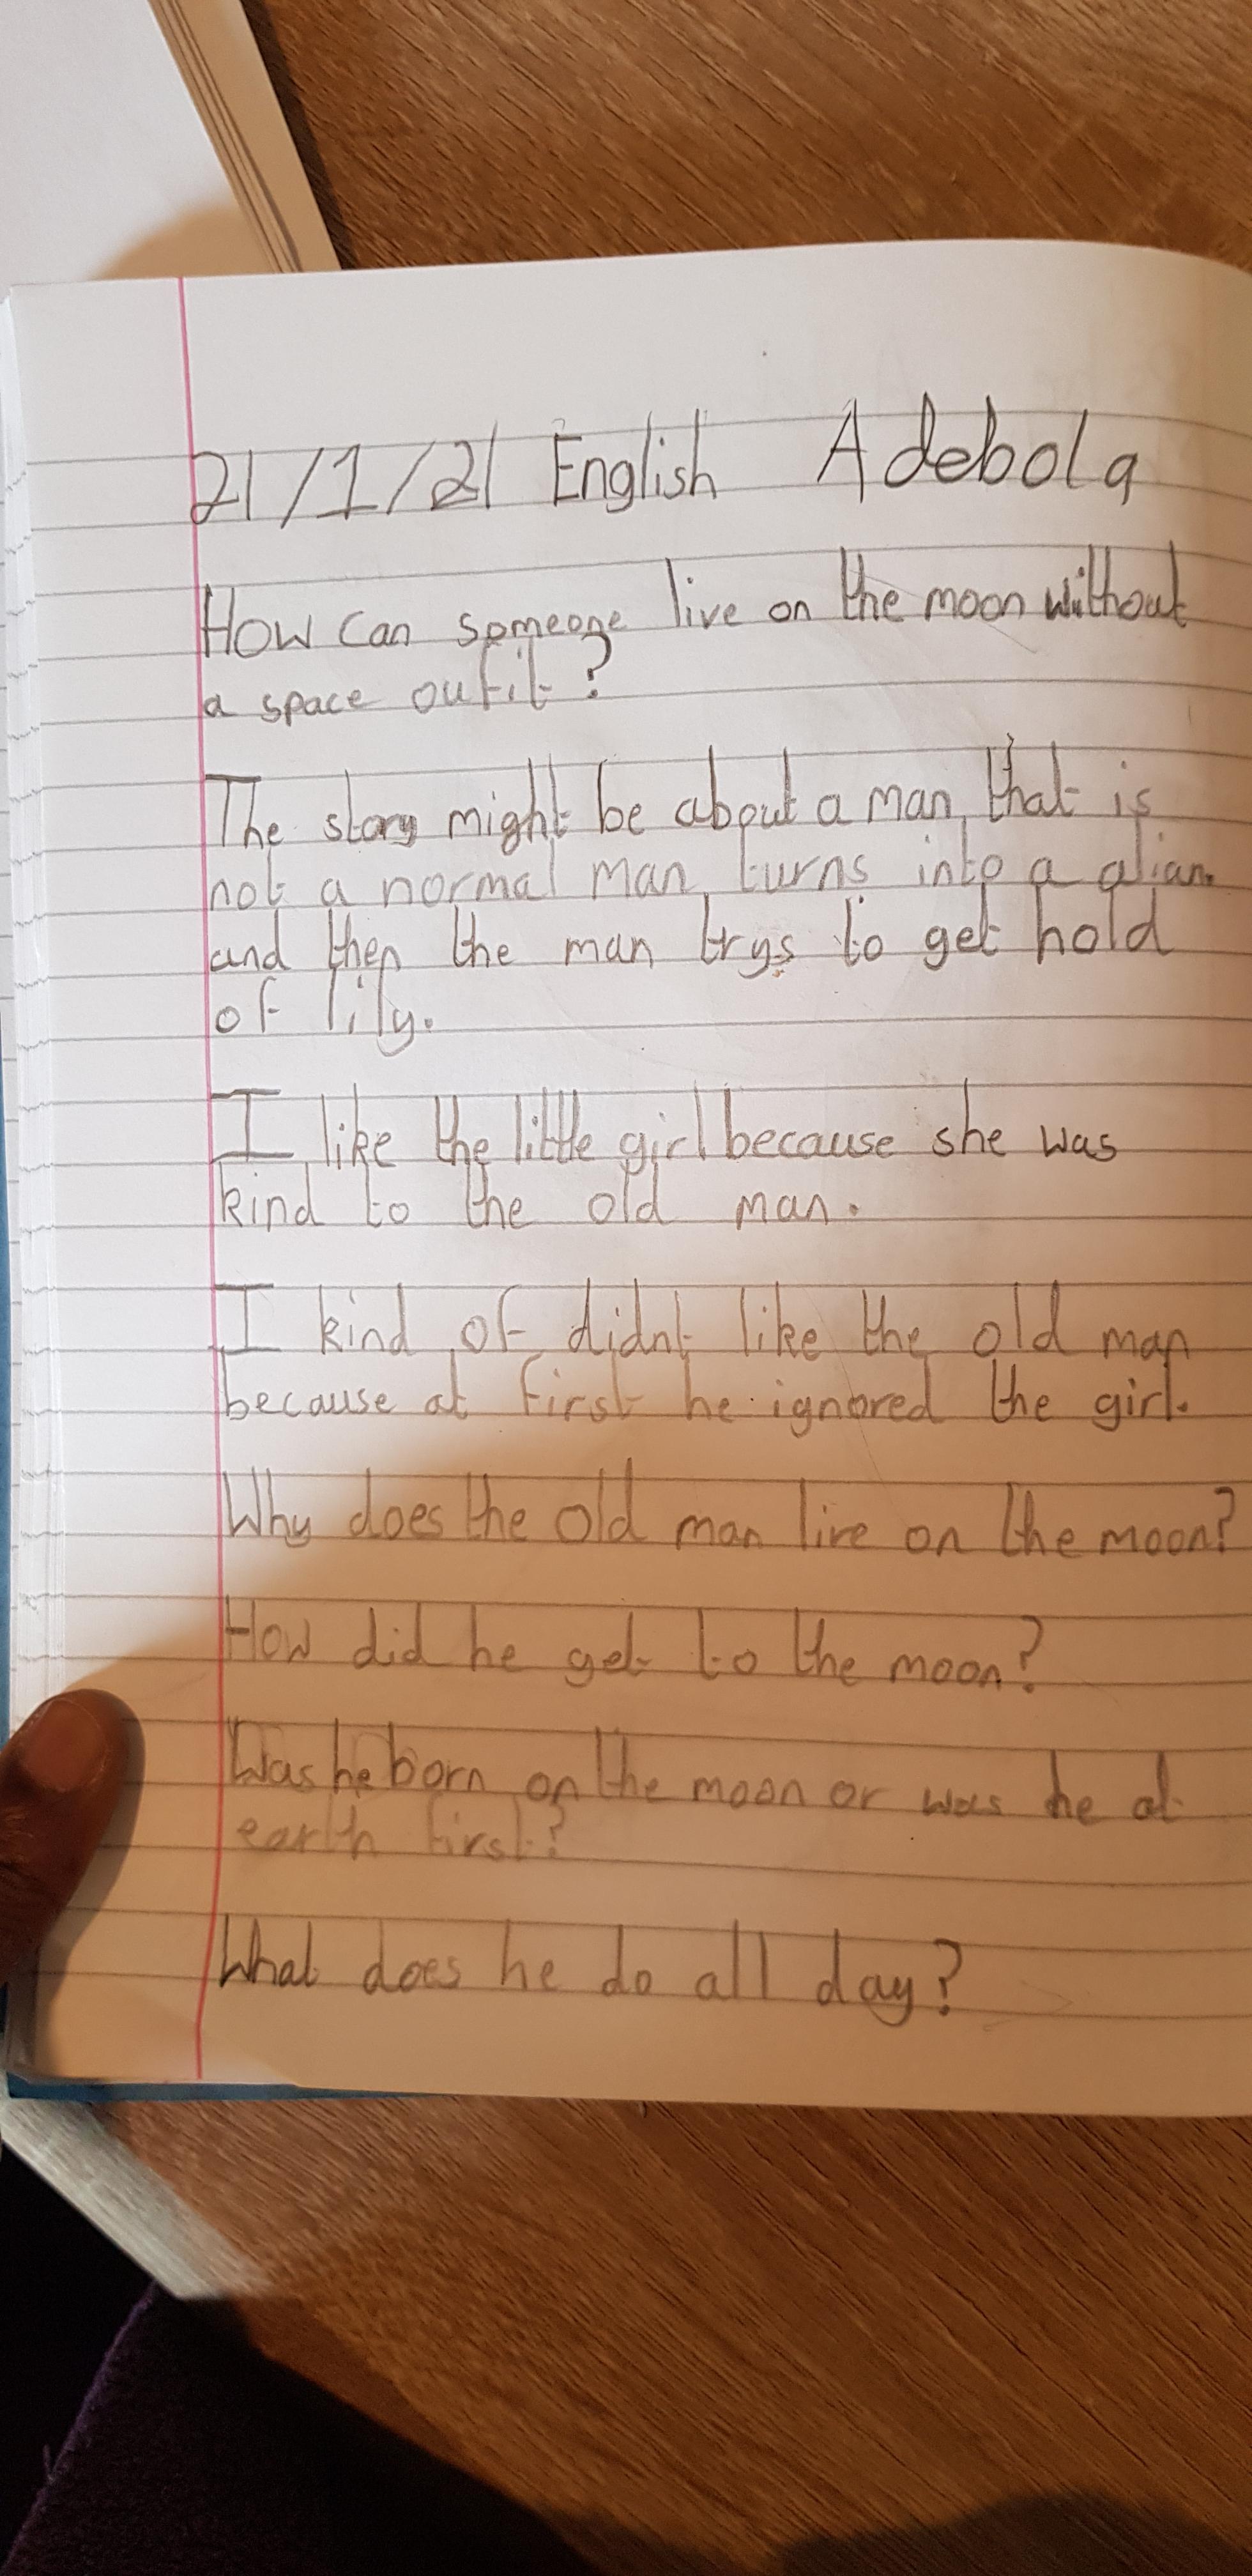 21/1/21 English Adebola
How can someone live on the moon without
a space outfit?
The story might be about a man, that is
not a normal man, turns into a alian.
and then the man trys to get hold
of lily.
I like the little girl because she was
kind to the old man.
I kind of didnt like the old man
because at first he ignored the girl.
Why does the old man live on the moon?
How did he get to the moon?
Was he born on the moon or was he at
earth first?
What does he do all day?